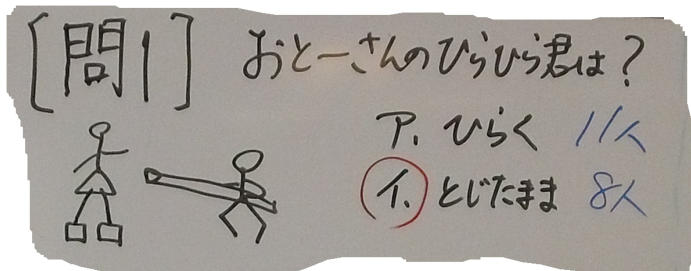 [問1] おとーさんのひらひら君は?
ア. ひらく 11人
イ. とじたまま 8人